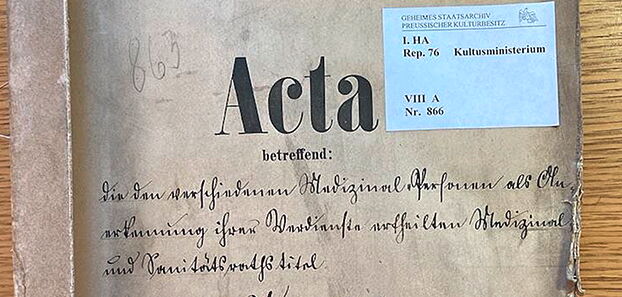 865
GEHEIMES STAATSARCHIV
PREUSSISCHER KULTURBESITZ
I. HA
Rep. 76 Kultusministerium
VIII A
Nr. 866
Acta
betreffend:
die den verschiedenen Medizinal-Personen als An-
erkennung ihrer Verdienste ertheilten Medizinal-
und Sanitätsrathstitel.